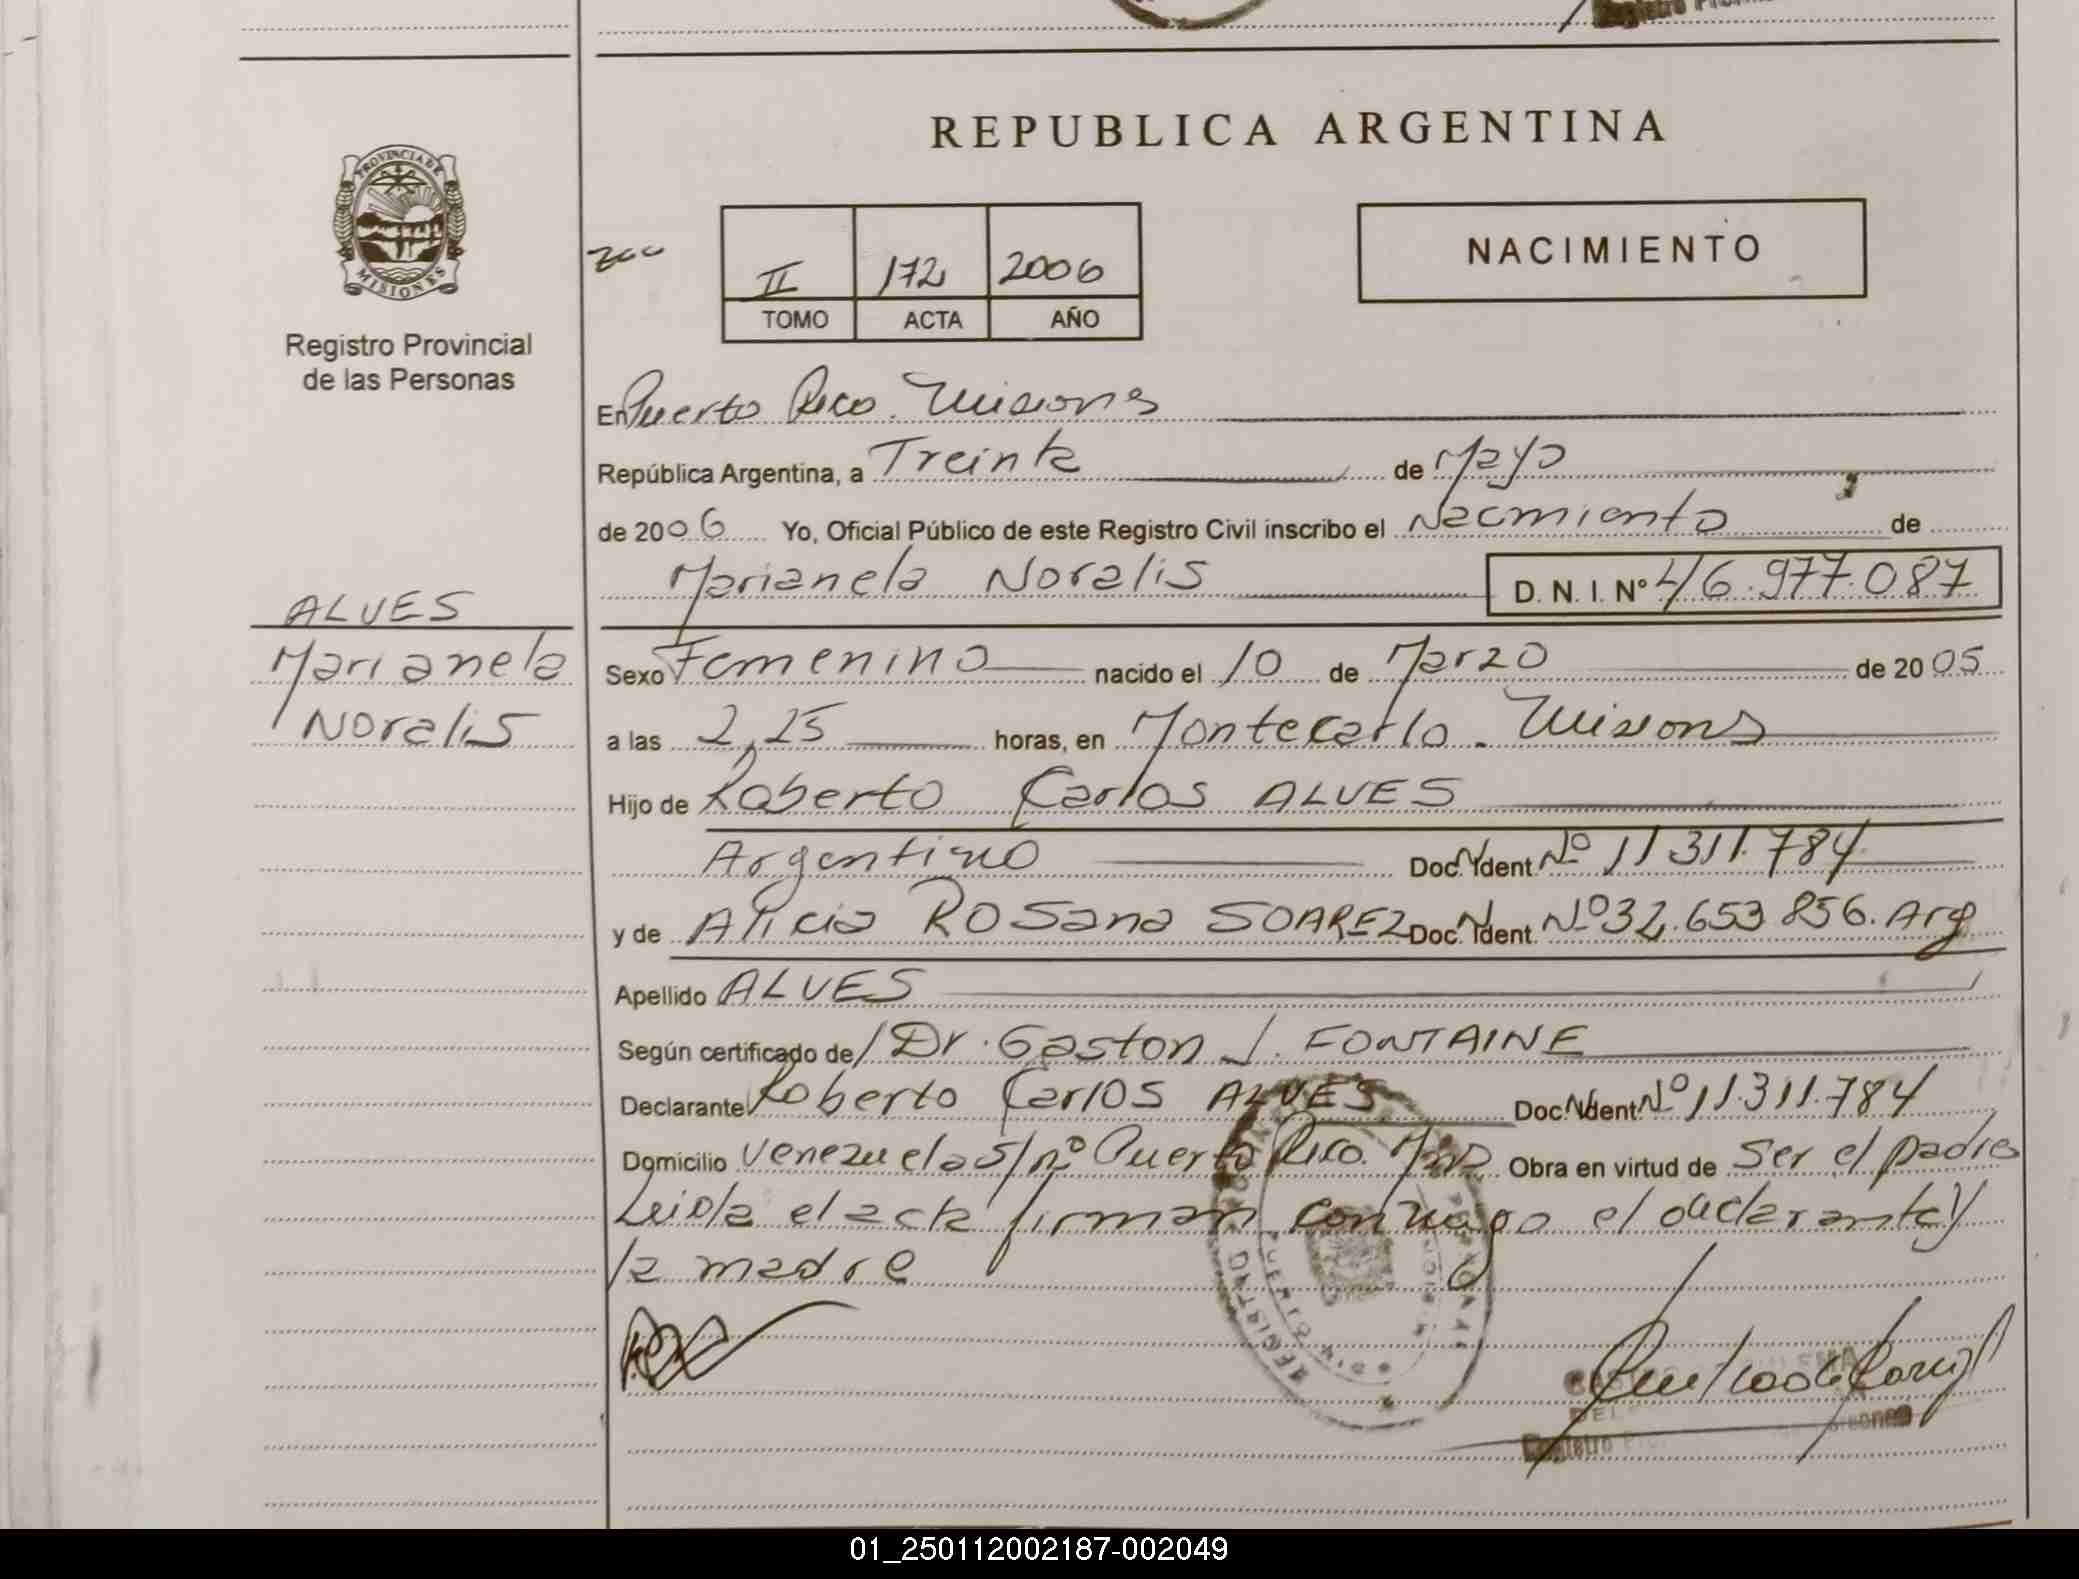 REPUBLICA ARGENTINA
PROVINCIA DE
MISIONES
Registro Provincial
de las Personas
II 172 2006
TOMO ACTA AÑO
NACIMIENTO
En Puerto Rico. Misiones
República Argentina, a Treinta de Mayo
de 2006 Yo, Oficial Público de este Registro Civil inscribo el Nacimiento de
Marianela Noralis D. N. I. Nº 46.977.087
ALVES
Marianela
Noralis
Sexo Femenino nacido el 10 de Marzo de 2005
a las 2,25 horas, en Montecarlo. Misiones
Hijo de Roberto Carlos ALVES
Argentino Doc. Ident. Nº 11311.784
y de Alicia Rosana SOAREZ Doc. Ident. Nº 32.653856. Arg
Apellido ALVES
Según certificado de Dr. Gaston J. FONTAINE
Declarante Roberto Carlos ALVES Doc. Ident. Nº 11.311.784
Domicilio Venezuela S/nº Puerto Rico. Obra en virtud de Ser el padre
Leida el acta firman conmigo el declarante y
la madre
Registro
01_250112002187-002049